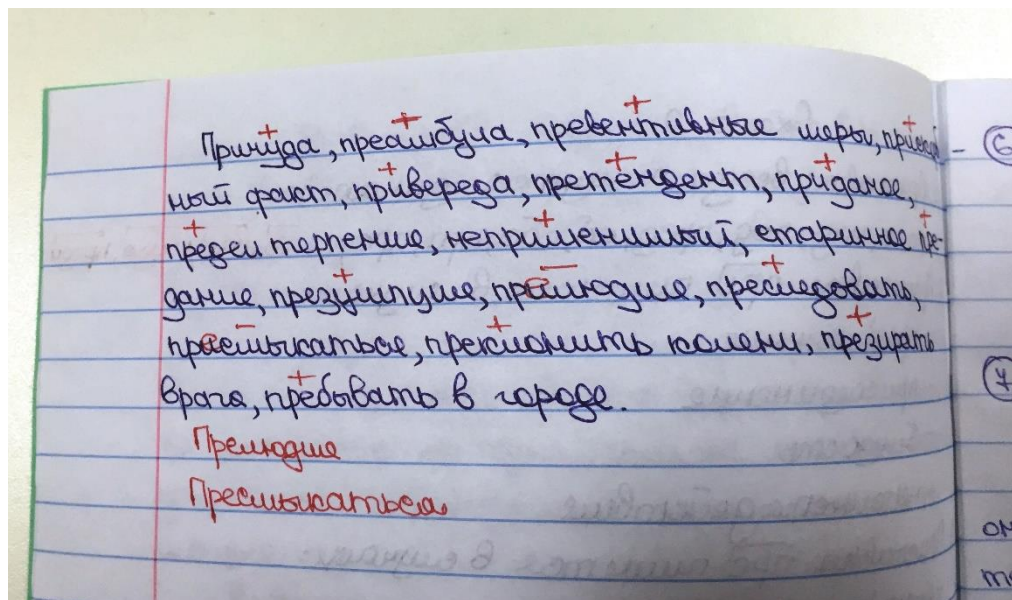 Причуда, преамбула, превентивные меры,
ный факт, привереда, претендент, приданое,
предел терпения, неприменимый, старинное пре-
дание, презумпция, прелюдия, преследовать,
пресмыкаться, преклонить колени, презирать
врага, пребывать в городе.
Прелюдия
Пресмыкаться
6
7